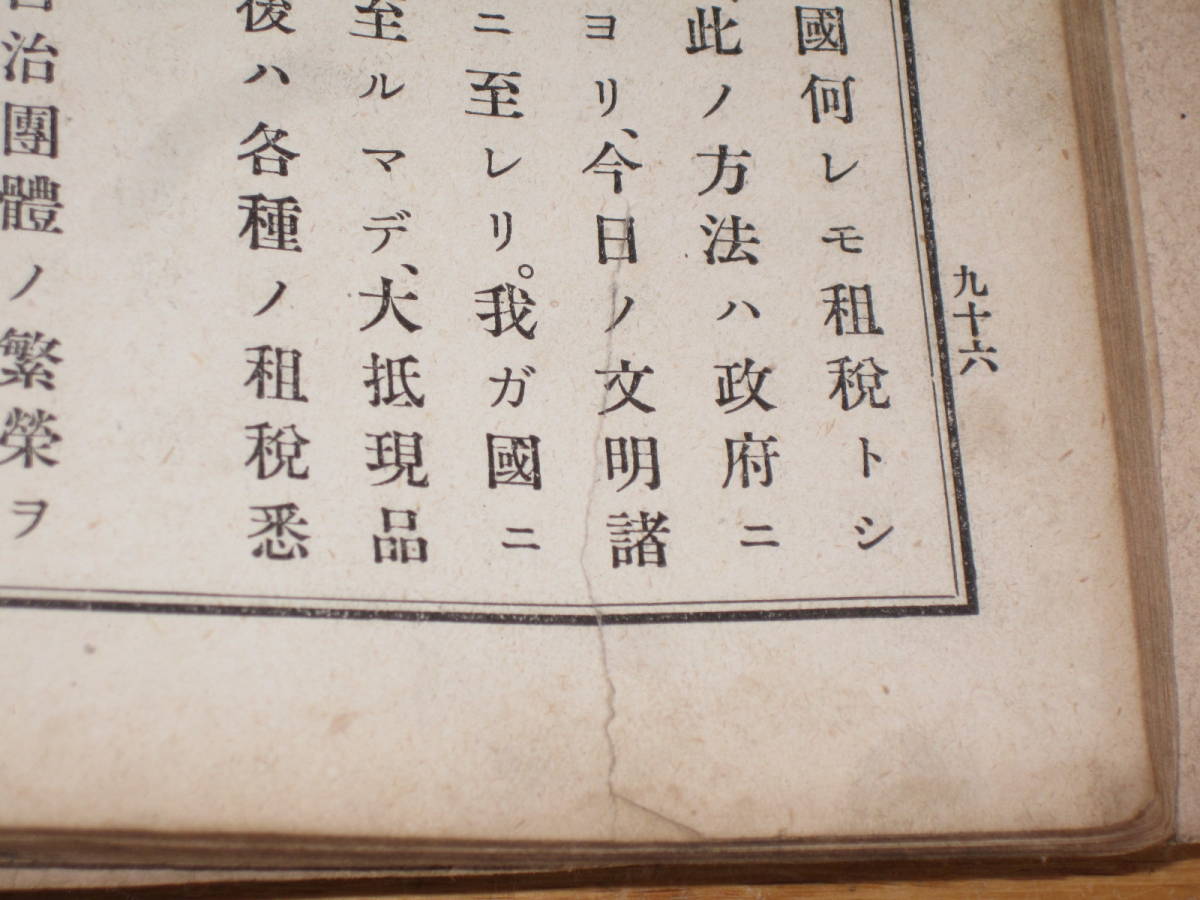 九十六
國何レモ租税トシ
此ノ方法ハ政府ニ
ヨリ、今日ノ文明諸
ニ至レリ。我ガ國ニ
至ルマデ、大抵現品
後ハ各種ノ租税悉
治團體ノ繁榮ヲ